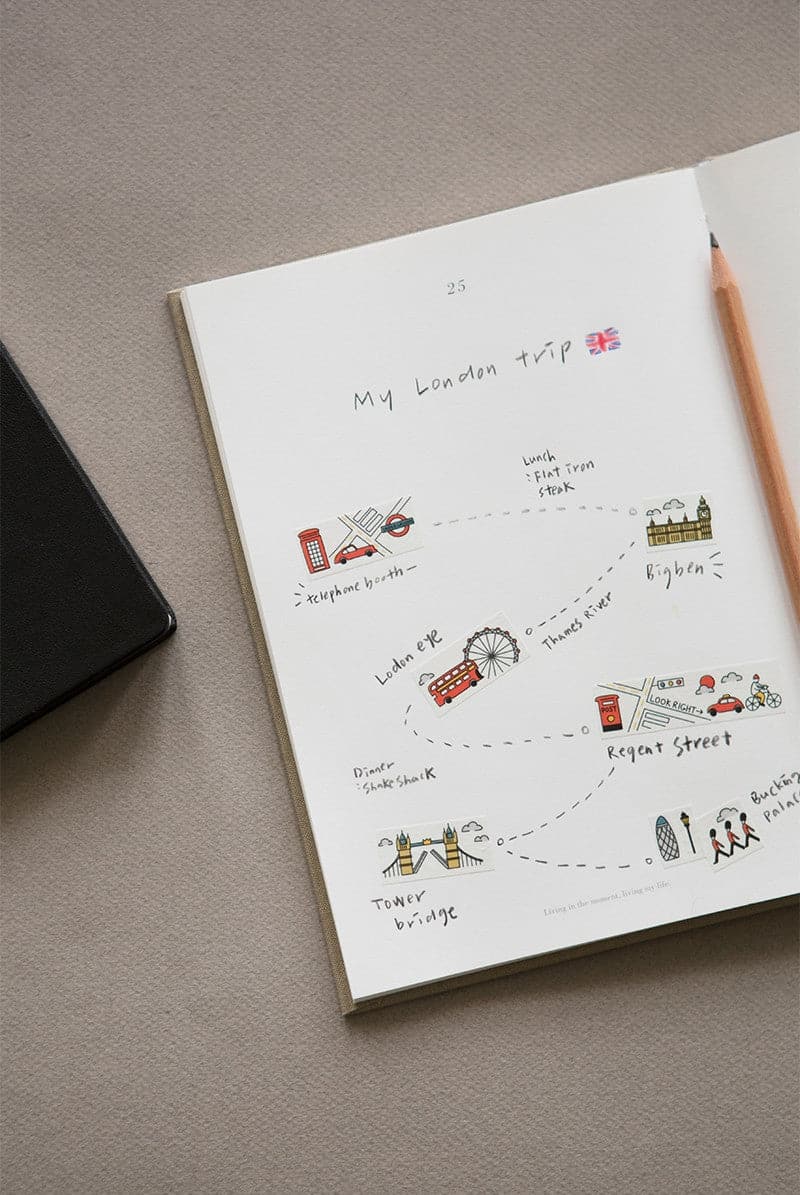 25
My London trip
Lunch
: Flat iron
steak
telephone booth
Bigben
Thames River
Lodon eye
POST
LOOK RIGHT→
Regent Street
Dinner
: Shake Shack
Tower
bridge
Living in the moment, living my life.